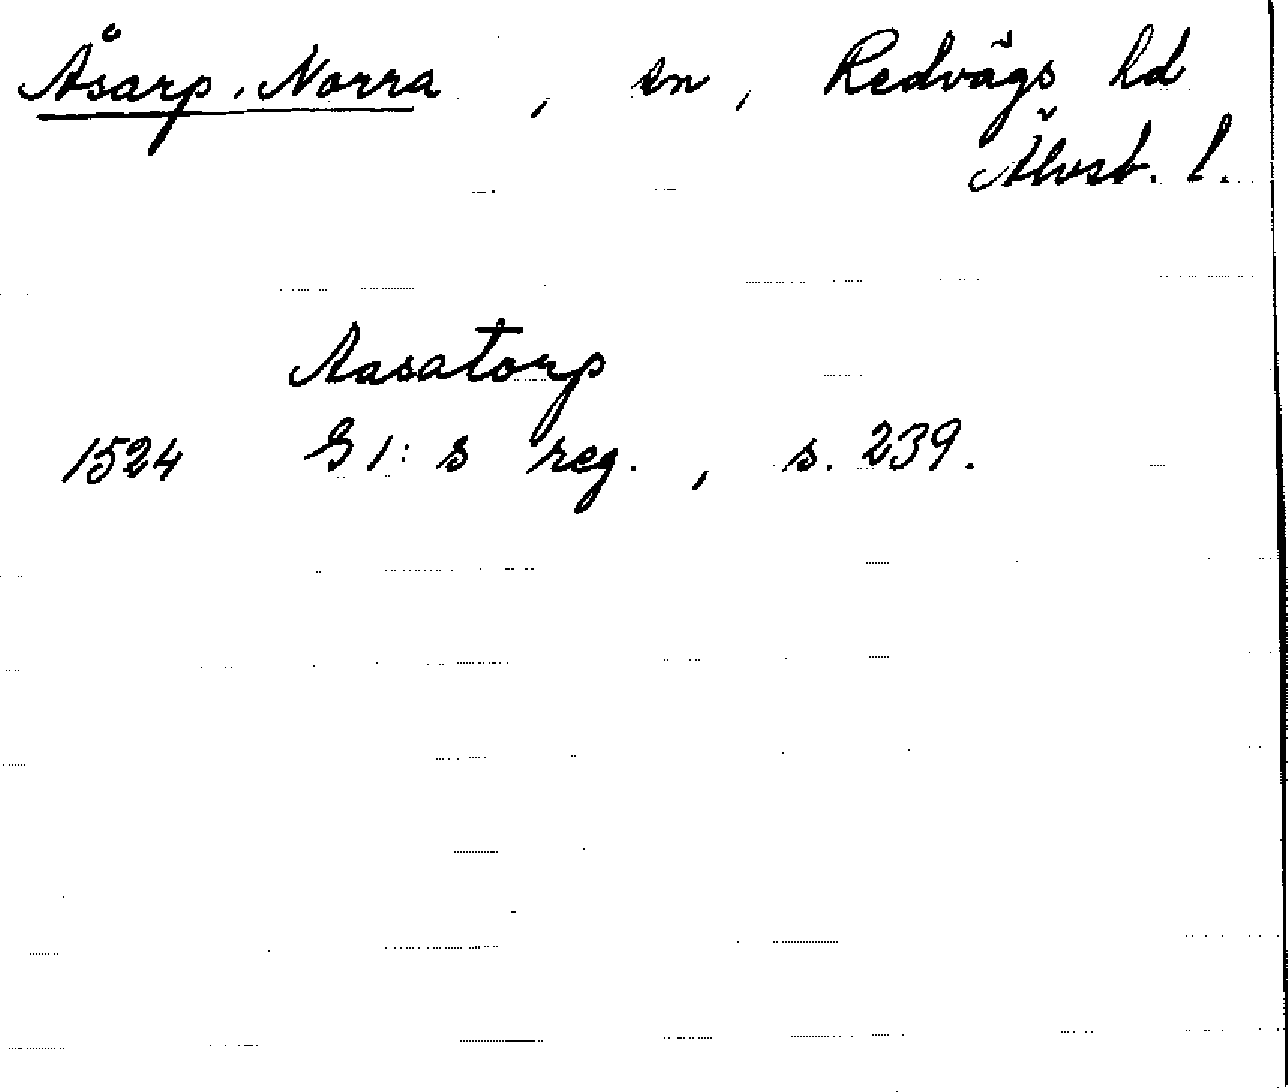 Åsarp, Norra, sn, Redvägs hd
Älvsb. l.
Aasatorp
1524 G I:s reg., s. 239.